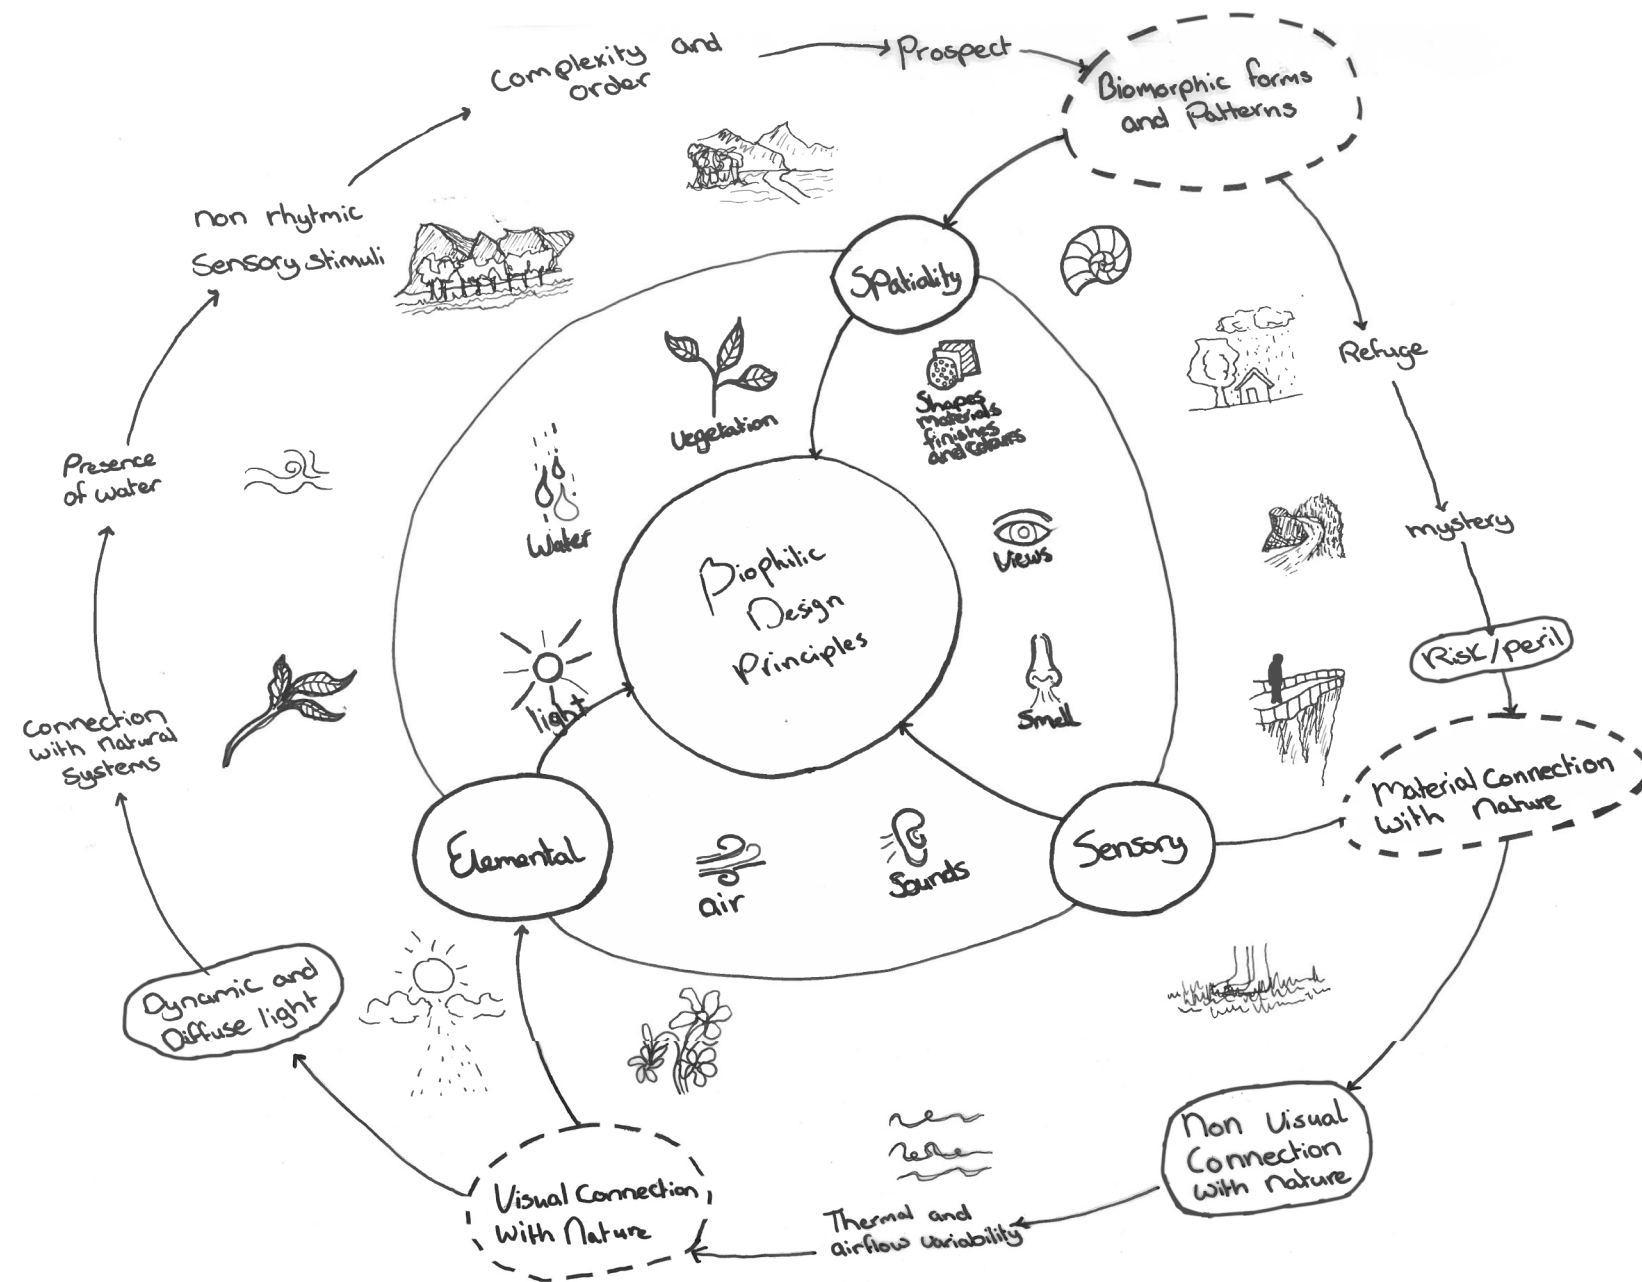 Complexity and
order
Prospect
Biomorphic forms
and Patterns
non rhytmic
Sensory stimuli
Spatiality
Refuge
Vegetation
Shapes
materials
finishes
and colours
Presence
of water
Water
Views
mystery
Biophilic
Design
Principles
Risk/peril
light
Smell
Connection
with Natural
Systems
Material Connection
with Nature
Elemental
air
Sounds
Sensory
Dynamic and
Diffuse light
Non Visual
Connection
with nature
Visual Connection
With Nature
Thermal and
airflow variability